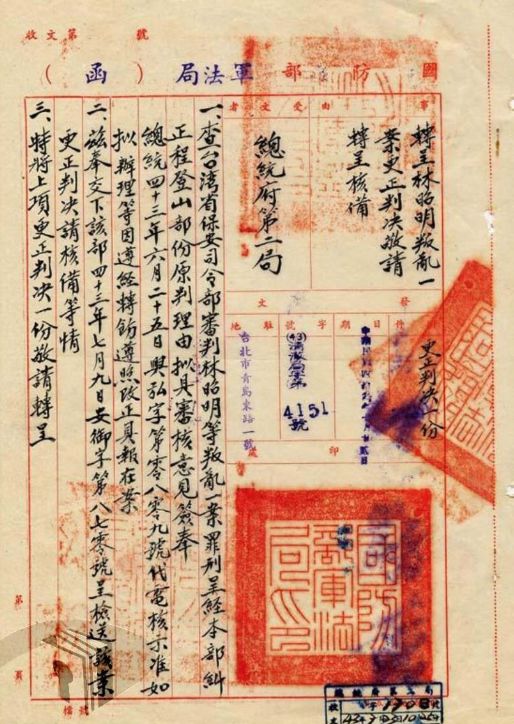 收文第 號
國防部軍法局（函）
事由
轉呈林昭明叛亂一
案更正判決敬請
轉呈核備
受文者
總統府第二局
附件
更正判決一份
發文
日期
字號
(43)
4151
號
駐地
台北市青島東路一號
印
一、查台湾省保安司令部審判林昭明等叛亂一案罪刑呈經本部糾
正程登山部份原判理由拟具審核意見簽奉
總統四十三年六月二十五日興弘字第零八零九號代電核示准如
拟辦理等因遵經轉飭遵照改正具報在案
二、茲奉交下該部四十三年七月九日安御字第八七零號呈檢送該案
更正判決請核備等情
三、特將上項更正判決一份敬請轉呈
第 頁
檔號